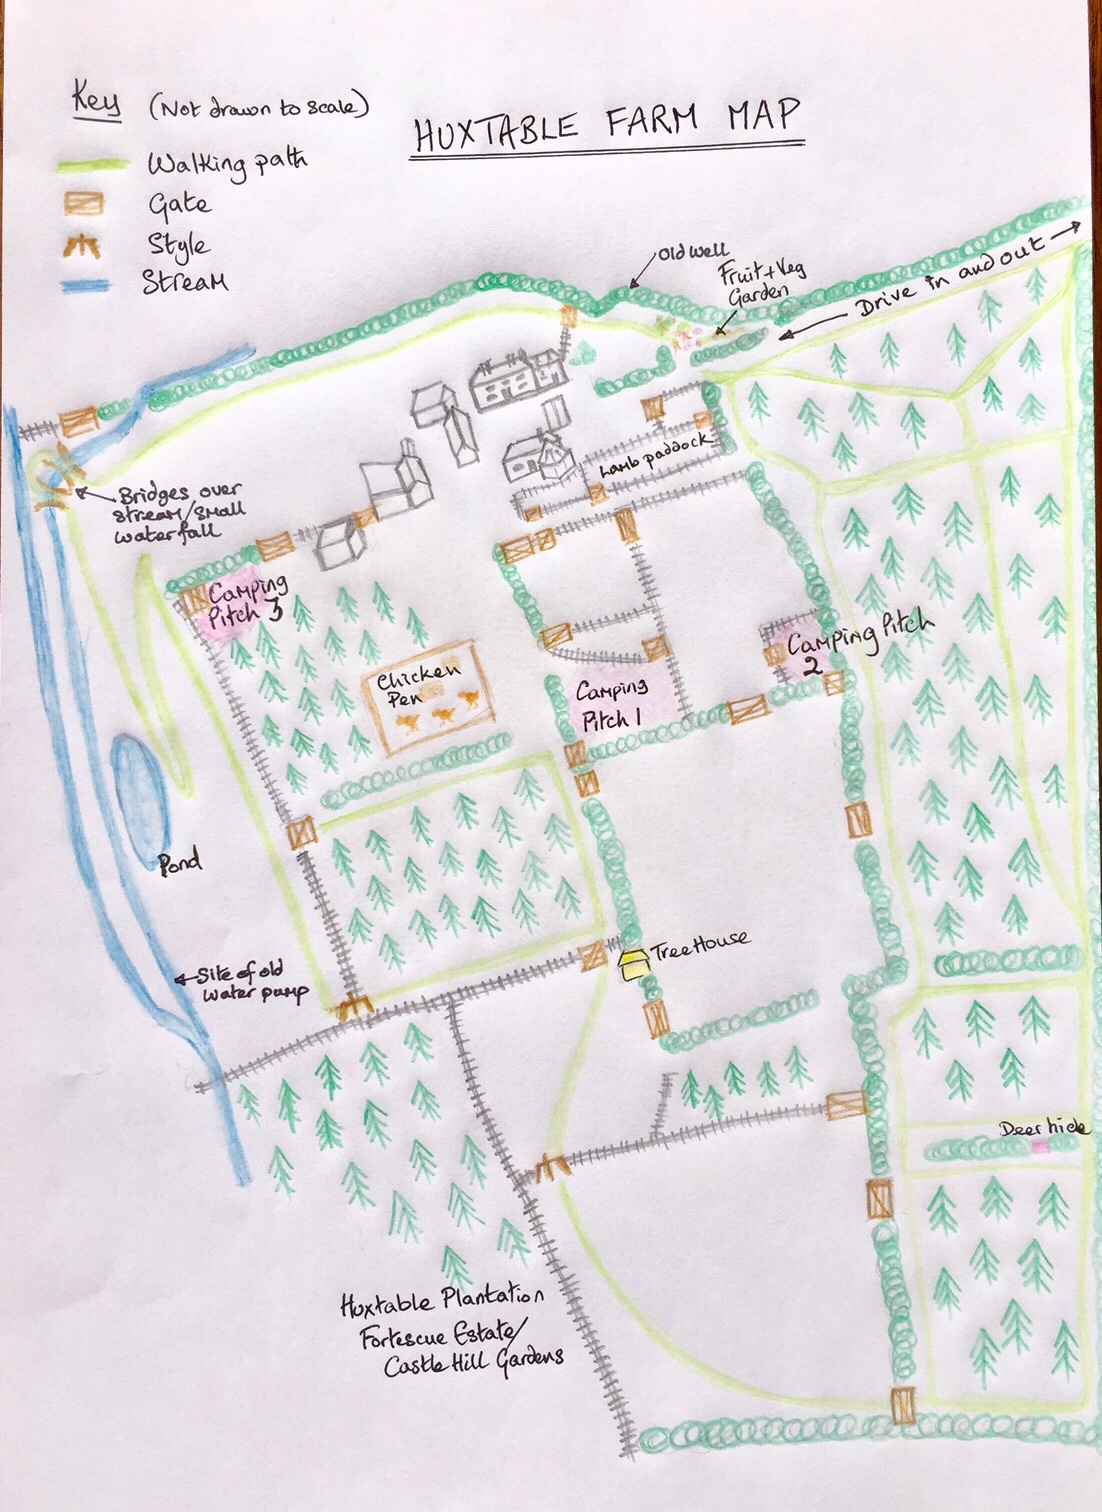 Key (Not drawn to scale)
HUXTABLE FARM MAP
Walking path
Gate
Style
Stream
Old Well
Fruit + Veg
Garden
Drive in and out
Lamb paddock
Bridges over
stream/small
waterfall
Camping
Pitch 3
Chicken
Pen
Camping Pitch
2
Camping
Pitch 1
Pond
Tree House
Site of old
water pump
Deer hide
Huxtable Plantation
Fortescue Estate/
Castle Hill Gardens